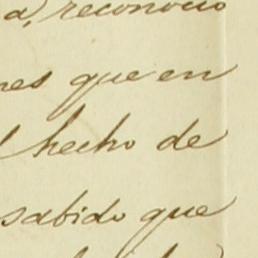 a, reconocio
nes que en
l hecho de
sabido que